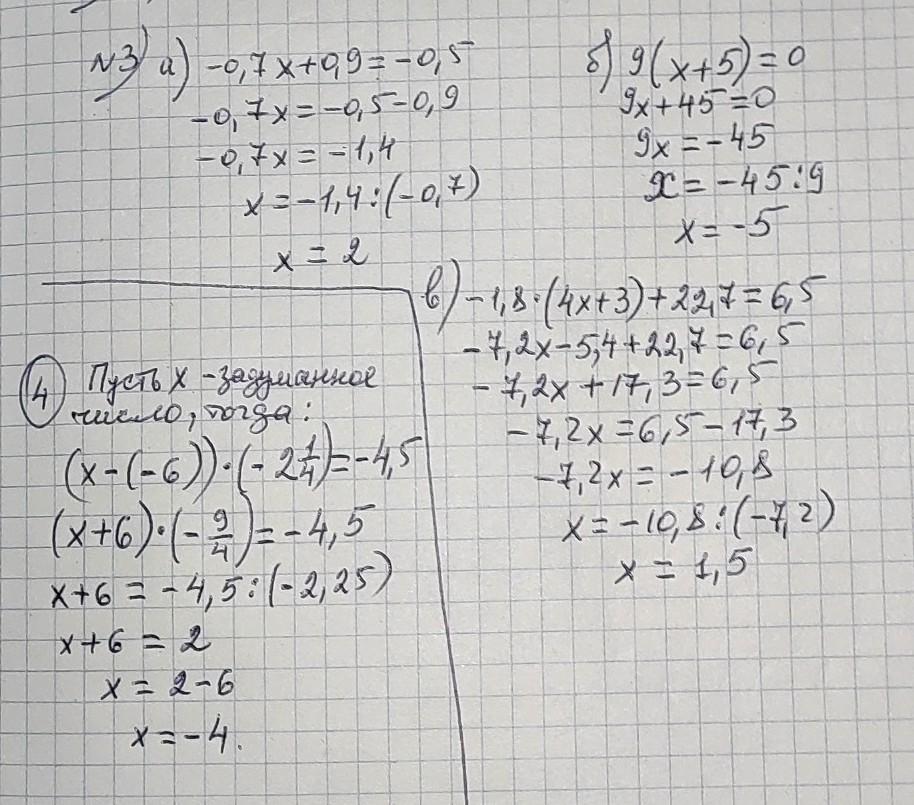 №3) а) -0,7x+0,9=-0,5
-0,7x=-0,5-0,9
-0,7x=-1,4
x=-1,4:(-0,7)
x=2
б) 9(x+5)=0
9x+45=0
9x=-45
x=-45:9
x=-5
в) -1,8·(4x+3)+22,7=6,5
-7,2x-5,4+22,7=6,5
-7,2x+17,3=6,5
-7,2x=6,5-17,3
-7,2x=-10,8
x=-10,8:(-7,2)
x=1,5
4 Пусть x-задуманное
число, тогда:
(x-(-6))·(-2 1/4)=-4,5
(x+6)·(-9/4)=-4,5
x+6=-4,5:(-2,25)
x+6=2
x=2-6
x=-4.